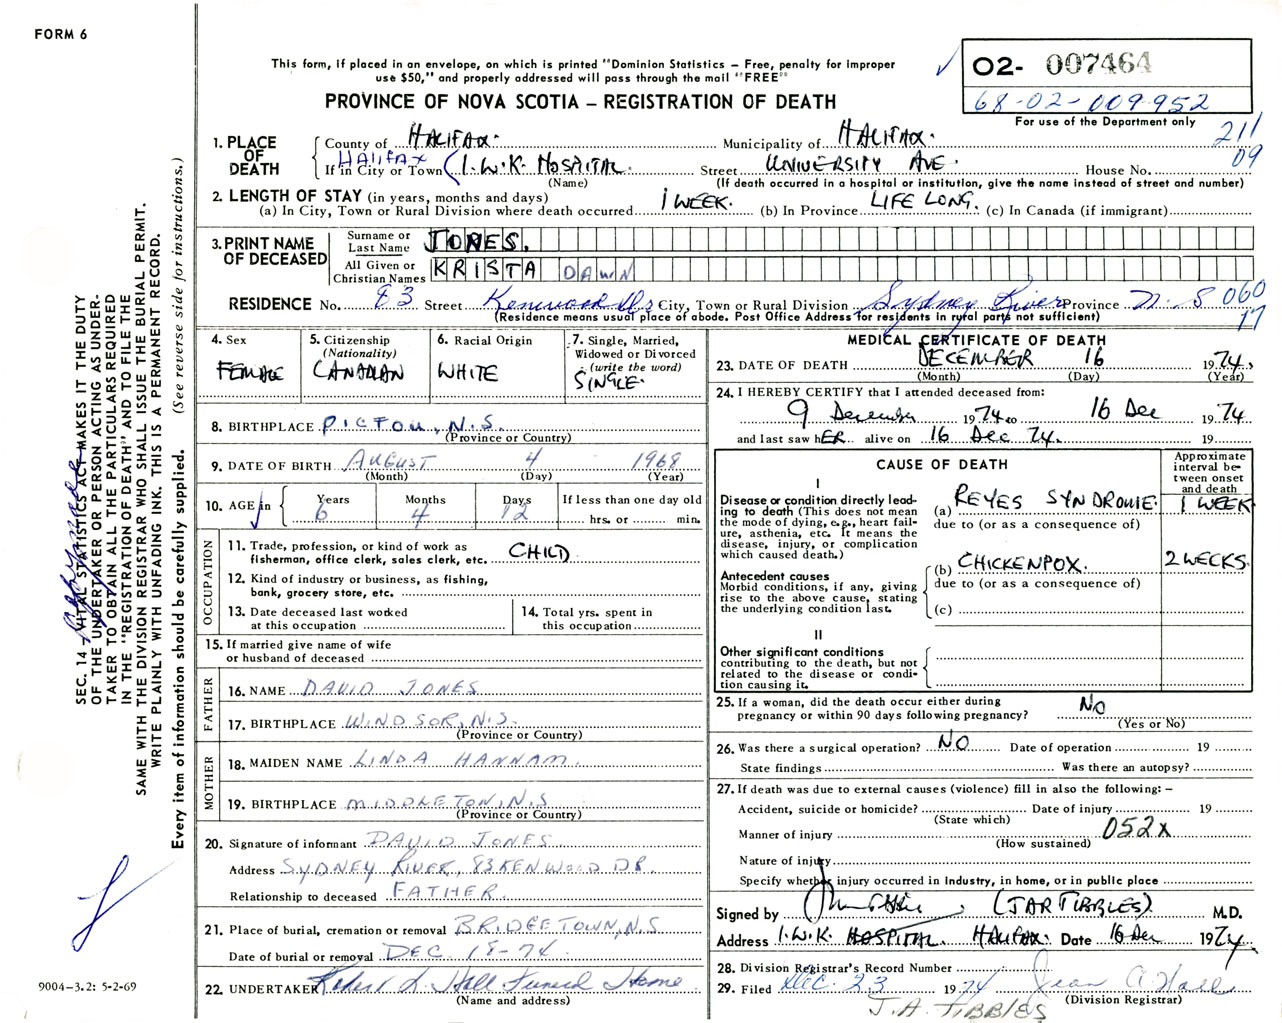 FORM 6
This form, if placed in an envelope, on which is printed "Dominion Statistics – Free, penalty for improper
use $50," and properly addressed will pass through the mail "FREE"
PROVINCE OF NOVA SCOTIA – REGISTRATION OF DEATH
O2- 007464
68-02-009952
For use of the Department only
211
09
1. PLACE OF DEATH
County of HALIFAX. Municipality of HALIFAX.
HALIFAX
If in City or Town (I.W.K. HOSPITAL. Street UNIVERSITY AVE. House No.
(Name) (If death occurred in a hospital or institution, give the name instead of street and number)
2. LENGTH OF STAY (in years, months and days)
(a) In City, Town or Rural Division where death occurred 1 WEEK. (b) In Province LIFE LONG. (c) In Canada (if immigrant)
3. PRINT NAME OF DECEASED
Surname or Last Name JONES.
All Given or Christian Names KRISTA DAWN
RESIDENCE No. 83 Street Kenwood Dr City, Town or Rural Division Sydney River Province N.S 060
17
(Residence means usual place of abode. Post Office Address for residents in rural parts not sufficient)
4. Sex FEMALE
5. Citizenship (Nationality) CANADIAN
6. Racial Origin WHITE
7. Single, Married, Widowed or Divorced (write the word) SINGLE.
8. BIRTHPLACE PICTOU, N.S.
(Province or Country)
9. DATE OF BIRTH AUGUST 4 1968
(Month) (Day) (Year)
10. AGE in Years 6 Months 4 Days 12
If less than one day old
hrs. or min.
OCCUPATION
11. Trade, profession, or kind of work as
fisherman, office clerk, sales clerk, etc. CHILD
12. Kind of industry or business, as fishing,
bank, grocery store, etc.
13. Date deceased last worked
at this occupation
14. Total yrs. spent in
this occupation
15. If married give name of wife
or husband of deceased
FATHER
16. NAME DAVID JONES
17. BIRTHPLACE WINDSOR, N.S.
(Province or Country)
MOTHER
18. MAIDEN NAME LINDA HANNAM
19. BIRTHPLACE MIDDLETON, N.S
(Province or Country)
20. Signature of informant DAVID JONES
Address SYDNEY RIVER, 83 KENWOOD DR.
Relationship to deceased FATHER
21. Place of burial, cremation or removal BRIDGETOWN, N.S
Date of burial or removal DEC 18-74
22. UNDERTAKER Robert L. Hall Funeral Home
(Name and address)
MEDICAL CERTIFICATE OF DEATH
23. DATE OF DEATH DECEMBER 16 1974.
(Month) (Day) (Year)
24. I HEREBY CERTIFY that I attended deceased from:
9 December 1974 to 16 Dec 1974
and last saw hER alive on 16 Dec 74. 19
CAUSE OF DEATH
Approximate interval between onset and death
I
Disease or condition directly lead-
ing to death (This does not mean
the mode of dying, e.g., heart fail-
ure, asthenia, etc. It means the
disease, injury, or complication
which caused death.)
(a) REYES SYNDROME. 1 WEEK
due to (or as a consequence of)
Antecedent causes
Morbid conditions, if any, giving
rise to the above cause, stating
the underlying condition last.
(b) CHICKENPOX. 2 WEEKS.
due to (or as a consequence of)
(c)
II
Other significant conditions
contributing to the death, but not
related to the disease or condi-
tion causing it.
25. If a woman, did the death occur either during
pregnancy or within 90 days following pregnancy? No
(Yes or No)
26. Was there a surgical operation? NO Date of operation 19
State findings Was there an autopsy?
27. If death was due to external causes (violence) fill in also the following: –
Accident, suicide or homicide? Date of injury 19
(State which)
Manner of injury 052x
(How sustained)
Nature of injury
Specify whether injury occurred in industry, in home, or in public place
Signed by (JAR TIBBLES) M.D.
Address I.W.K. HOSPITAL. HALIFAX. Date 16 Dec 1974.
28. Division Registrar's Record Number
29. Filed Dec. 23 1974 Jean A. Hall
(Division Registrar)
J.A. TIBBLES
SEC. 14 – VITAL STATISTICS ACT MAKES IT THE DUTY
OF THE UNDERTAKER OR PERSON ACTING AS UNDER-
TAKER TO OBTAIN ALL THE PARTICULARS REQUIRED
IN THE "REGISTRATION OF DEATH" AND TO FILE THE
SAME WITH THE DIVISION REGISTRAR WHO SHALL ISSUE THE BURIAL PERMIT.
WRITE PLAINLY WITH UNFADING INK. THIS IS A PERMANENT RECORD.
Every item of information should be carefully supplied. (See reverse side for instructions.)
9004–3.2: 5-2-69